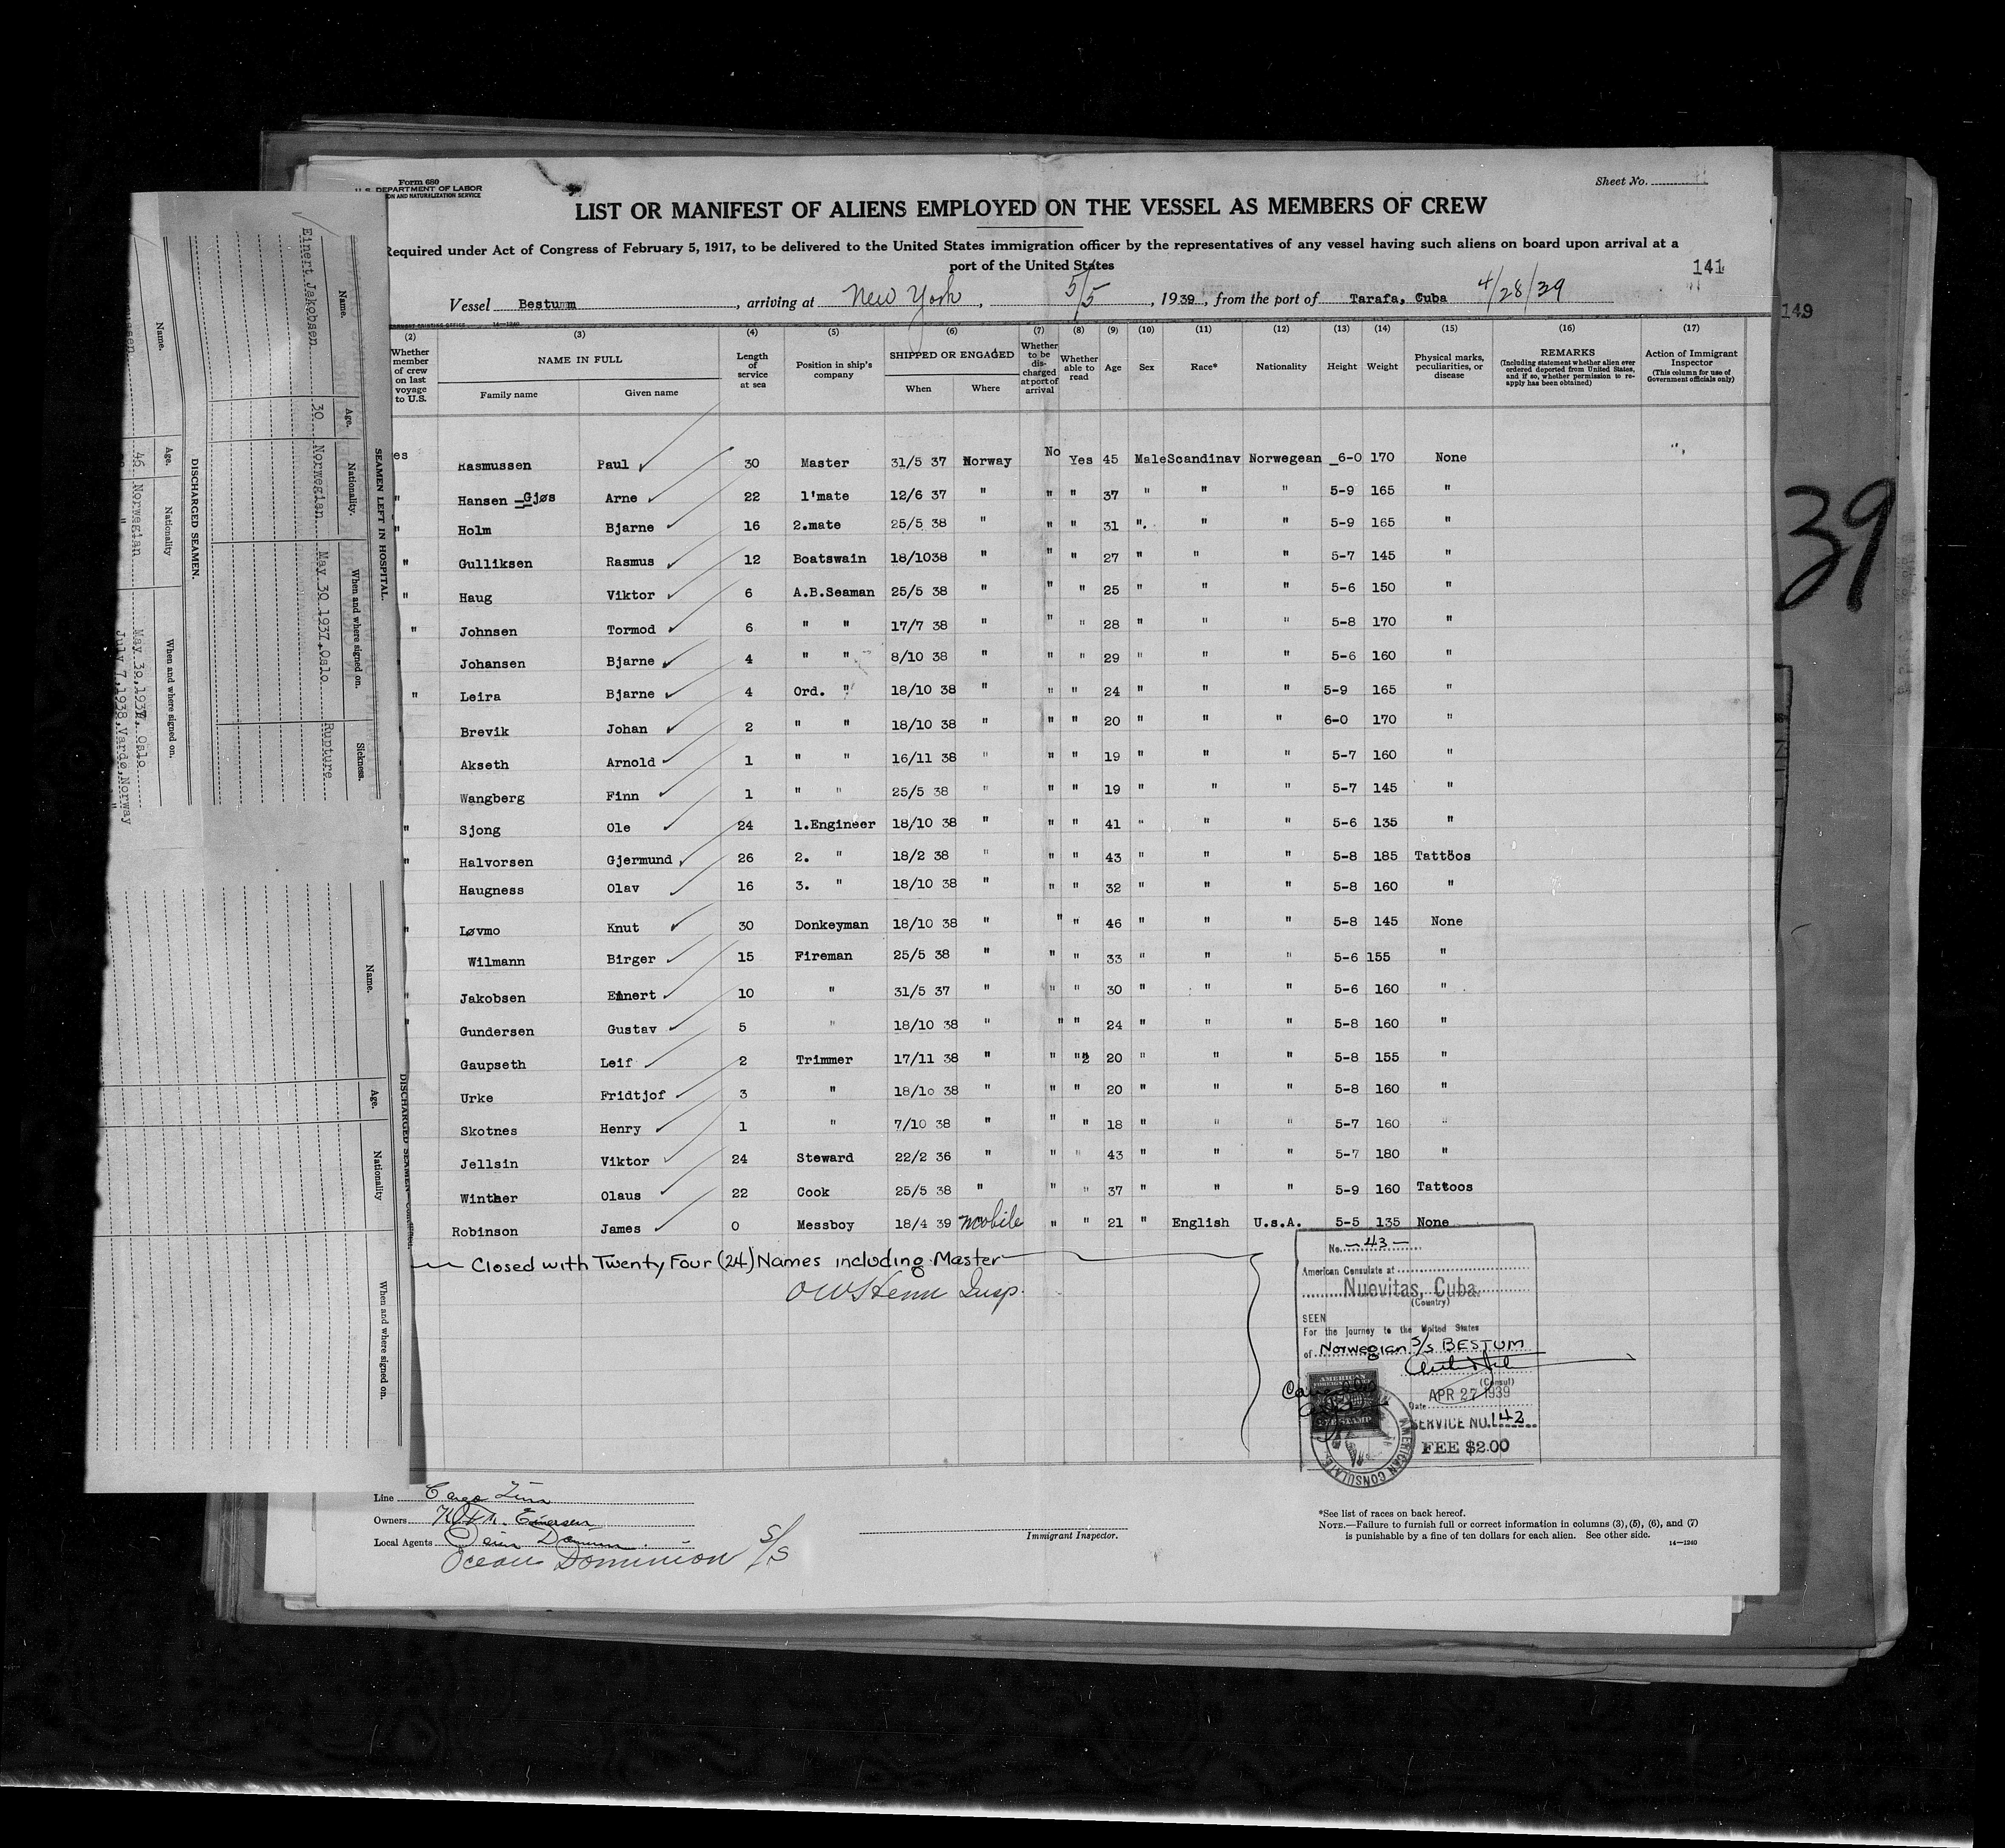 Form 680
U.S. DEPARTMENT OF LABOR
ON AND NATURALIZATION SERVICE
Sheet No.
LIST OR MANIFEST OF ALIENS EMPLOYED ON THE VESSEL AS MEMBERS OF CREW
Required under Act of Congress of February 5, 1917, to be delivered to the United States immigration officer by the representatives of any vessel having such aliens on board upon arrival at a
port of the United States
141
149
39
Vessel Bestum, arriving at New York, 5/5, 1939, from the port of Tarafa, Cuba 4/28/39
14—1240
(2) (3) (4) (5) (6) (7) (8) (9) (10) (11) (12) (13) (14) (15) (16) (17)
Whether member of crew on last voyage to U.S.
NAME IN FULL
Family name
Given name
Length of service at sea
Position in ship's company
SHIPPED OR ENGAGED
When
Where
Whether to be discharged at port of arrival
Whether able to read
Age
Sex
Race*
Nationality
Height
Weight
Physical marks, peculiarities, or disease
REMARKS
(Including statement whether alien ever ordered deported from United States, and if so, whether permission to reapply has been obtained)
Action of Immigrant Inspector
(This column for use of Government officials only)
es Rasmussen Paul 30 Master 31/5 37 Norway No Yes 45 Male Scandinav Norwegean 6-0 170 None
" Hansen Gjøs Arne 22 1'mate 12/6 37 " " " 37 " " " 5-9 165 "
" Holm Bjarne 16 2.mate 25/5 38 " " " 31 " " " 5-9 165 "
" Gulliksen Rasmus 12 Boatswain 18/1038 " " " 27 " " " 5-7 145 "
" Haug Viktor 6 A.B.Seaman 25/5 38 " " " 25 " " " 5-6 150 "
" Johnsen Tormod 6 " " 17/7 38 " " " 28 " " " 5-8 170 "
Johansen Bjarne 4 " " 8/10 38 " " " 29 " " " 5-6 160 "
" Leira Bjarne 4 Ord. " 18/10 38 " " " 24 " " " 5-9 165 "
Brevik Johan 2 " " 18/10 38 " " " 20 " " " 6-0 170 "
Akseth Arnold 1 " " 16/11 38 " " " 19 " " " 5-7 160 "
Wangberg Finn 1 " " 25/5 38 " " " 19 " " " 5-7 145 "
" Sjong Ole 24 1.Engineer 18/10 38 " " " 41 " " " 5-6 135 "
" Halvorsen Gjermund 26 2. " 18/2 38 " " " 43 " " " 5-8 185 Tattoos
" Haugness Olav 16 3. " 18/10 38 " " " 32 " " " 5-8 160 "
" Løvmo Knut 30 Donkeyman 18/10 38 " " " 46 " " " 5-8 145 None
Wilmann Birger 15 Fireman 25/5 38 " " " 33 " " " 5-6 155 "
" Jakobsen Einert 10 " 31/5 37 " " " 30 " " " 5-6 160 "
" Gundersen Gustav 5 " 18/10 38 " " " 24 " " " 5-8 160 "
Gaupseth Leif 2 Trimmer 17/11 38 " " " 20 " " " 5-8 155 "
Urke Fridtjof 3 " 18/10 38 " " " 20 " " " 5-8 160 "
Skotnes Henry 1 " 7/10 38 " " " 18 " " " 5-7 160 "
Jellsin Viktor 24 Steward 22/2 36 " " " 43 " " " 5-7 180 "
Winther Olaus 22 Cook 25/5 38 " " " 37 " " " 5-9 160 Tattoos
Robinson James 0 Messboy 18/4 39 Mobile " " 21 " English U.s.A. 5-5 135 None
Closed with Twenty Four (24) Names including Master
Insp.
No. -43-
American Consulate at
Nuevitas, Cuba.
(Country)
SEEN
For the journey to the United States
of Norwegian S/S BESTUM
(Consul)
APR 27 1939
Date
SERVICE NO. 142
FEE $2.00
AMERICAN
STAMP
AMERICAN CONSULATE
Line Cargo Line
Owners
Local Agents
Ocean Dominion S/S
Immigrant Inspector.
*See list of races on back hereof.
NOTE.—Failure to furnish full or correct information in columns (3), (5), (6), and (7)
is punishable by a fine of ten dollars for each alien. See other side.
14—1240
SEAMEN LEFT IN HOSPITAL.
Name. Age. Nationality. When and where signed on. Sickness.
Einert Jakobsen 30 Norwegian May 30 1937, Oslo Rupture
DISCHARGED SEAMEN.
Name. Age. Nationality When and where signed on.
46 Norwegian May 30, 1937, Oslo
" July 7, 1938, Vardø, Norway
DISCHARGED SEAMEN—Continued.
Name. Age. Nationality When and where signed on.